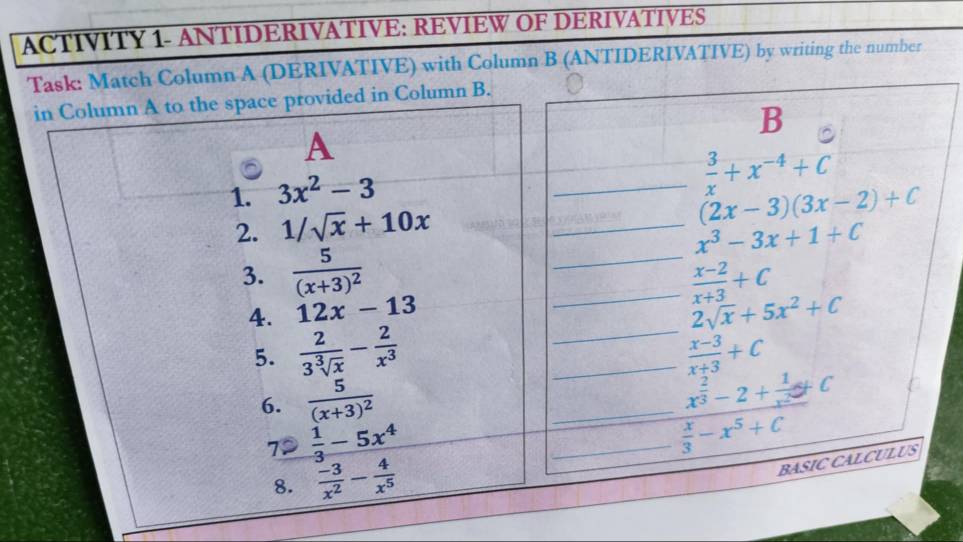 ACTIVITY 1- ANTIDERIVATIVE: REVIEW OF DERIVATIVES
Task: Match Column A (DERIVATIVE) with Column B (ANTIDERIVATIVE) by writing the number
in Column A to the space provided in Column B.
A
1. 3x² − 3
2. 1/√x + 10x
3. 5/(x+3)²
4. 12x − 13
5. 2/(3∛x) − 2/x³
6. 5/(x+3)²
7. 1/3 − 5x⁴
8. −3/x² − 4/x⁵
B
______ 3/x + x⁻⁴ + C
______ (2x − 3)(3x − 2) + C
______ x³ − 3x + 1 + C
______ (x−2)/(x+3) + C
______ 2√x + 5x² + C
______ (x−3)/(x+3) + C
______ x^(2/3) − 2 + 1/x² + C
______ x/3 − x⁵ + C
BASIC CALCULUS